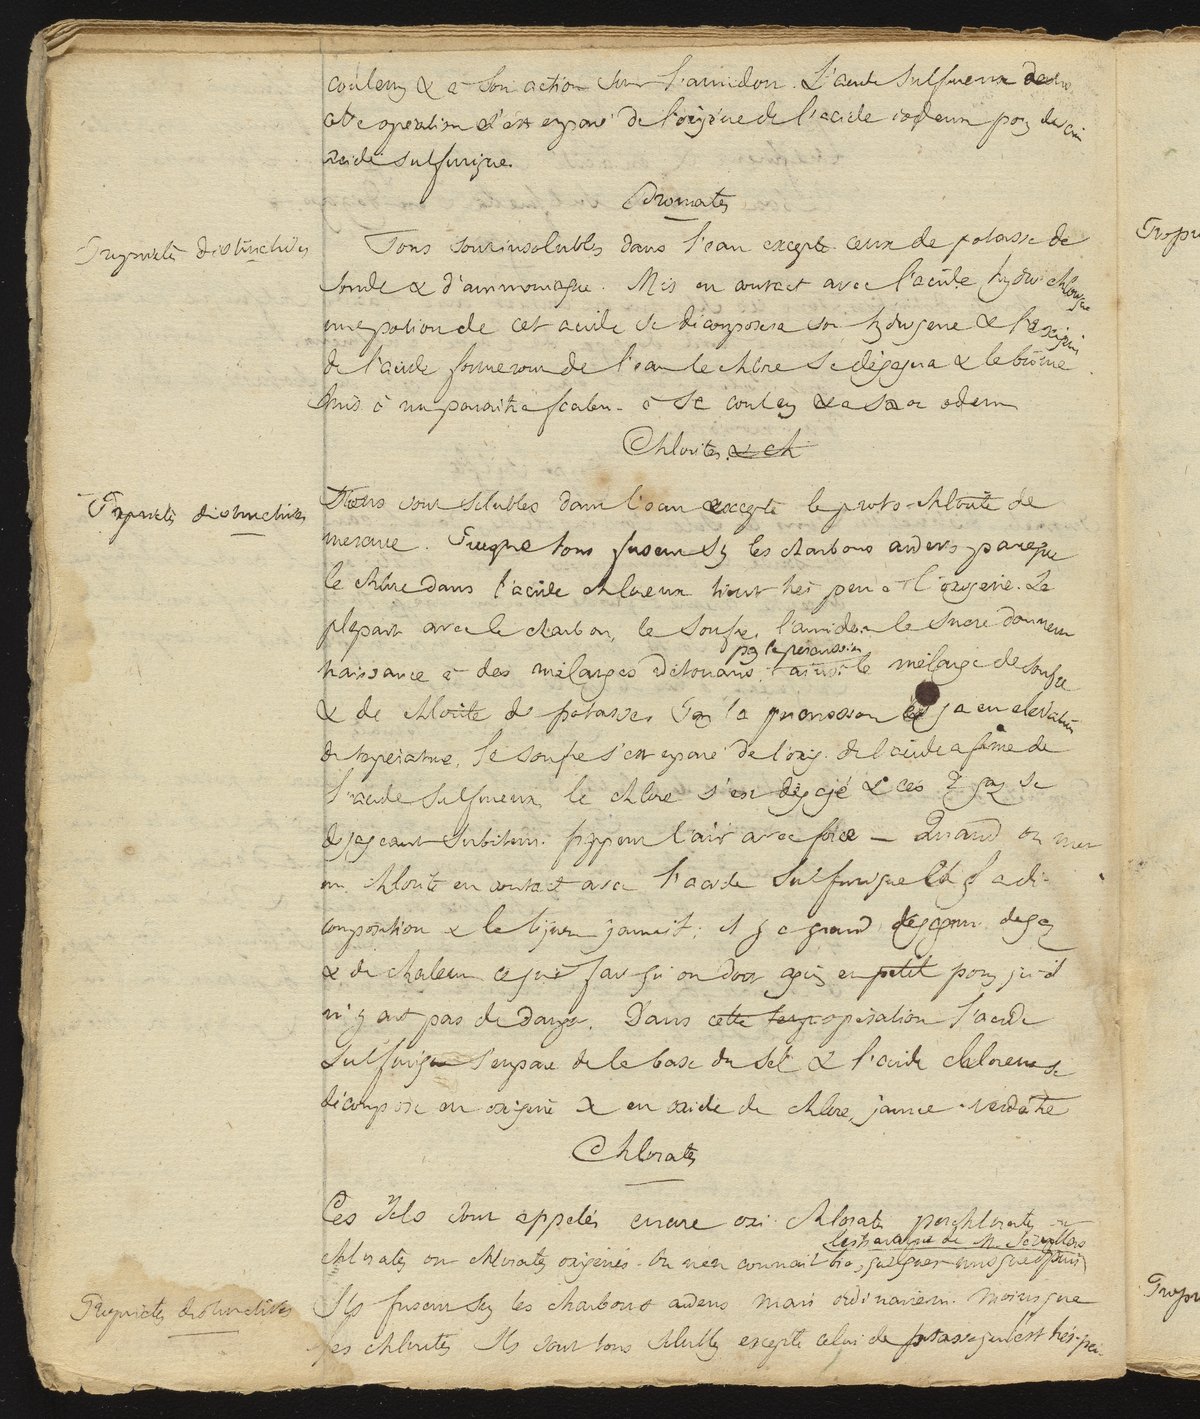 couleur & à son action sur l'amidon. L'acide sulfureux dans
cette opération s'est emparé de l'oxigène de l'acide iodeux pour devenir
acide sulfurique.
Bromates
Propriétés distinctives
Tous sont insolubles dans l'eau excepté ceux de potasse de
soude & d'ammoniaque. Mis en contact avec l'acide hydro chlorique
une portion de cet acide se décomposera son hydrogene & l'oxigène
de l'acide formeront de l'eau le chlore se dégagera & le brôme
mis à nu paraîtra facilem. à sa couleur & à son odeur
Chlorites & ch
Propriétés distinctives
Tous sont solubles dans l'eau excepté le proto-chlorite de
mercure. Presque tous fusent sur les charbons ardens parceque
le chlore dans l'acide chloreux tient très peu à l'oxigene. La
plupart avec le charbon, le soufre, l'amidon le sucre donnent
par la percussion
naissance à des mélanges détonans, ainsi le mélange de soufre
& de chlorite de potasse. Par la percussion il y a eu élévation
de température, le soufre s'est emparé de l'oxig. de l'acide a formé de
l'acide sulfureux, le chlore s'est dégagé & ces 2 gaz se
dégageant subitem. frappent l'air avec force — Quand on met
un chlorite en contact avec l'acide sulfurique il y a dé-
composition & la liqueur jaunit; il y a grand dégagem. de gaz
& de chaleur ce qui fait qu'on doit agir en petit pour qu'il
n'y ait pas de danger. Dans cette opération l'acide
sulfurique s'empare de la base du sel & l'acide chloreux se
décompose en oxigène & en oxide de chlore, jaune verdâtre
Chlorates
Ces sels sont appelés encore oxi-chlorates perchlorates ou
les travaux de M. Sérullas
chlorates ou chlorates oxigénés. On n'en connait que quelques uns que depuis
Propriétés distinctives
Ils fusent sur les charbons ardens mais ordinairem. moins que
les chlorites Ils sont tous solubles excepté celui de potasse qui l'est très-peu.
Propr
Propr